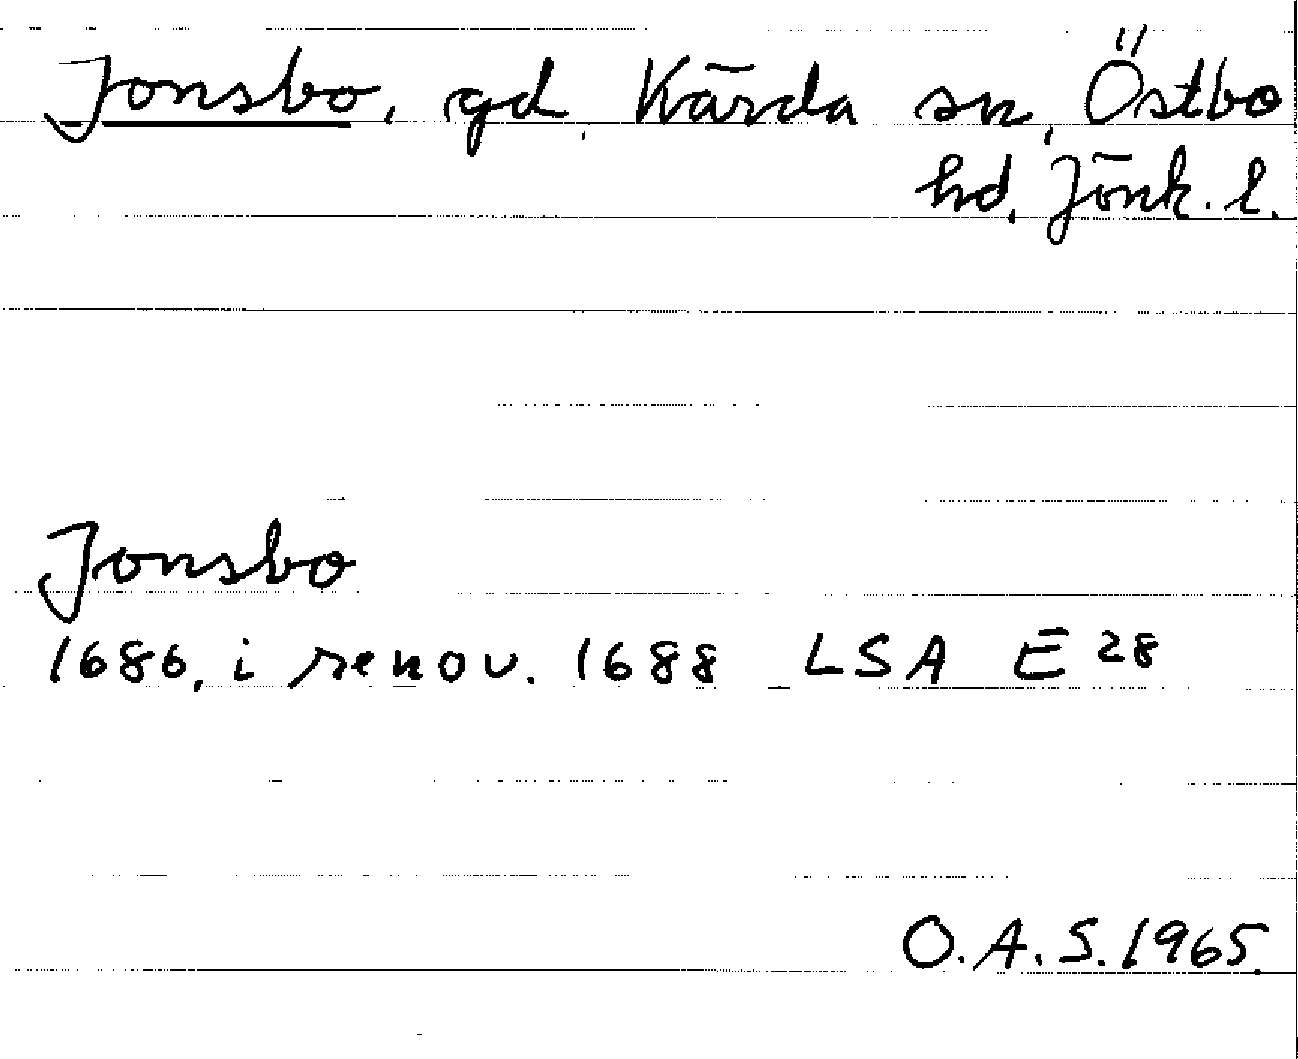 Jonsbo, gd, Kärda sn, Östbo
hd, Jönk. l.
Jonsbo
1686, i renov. 1688 LSA E 28
O.A.S. 1965.